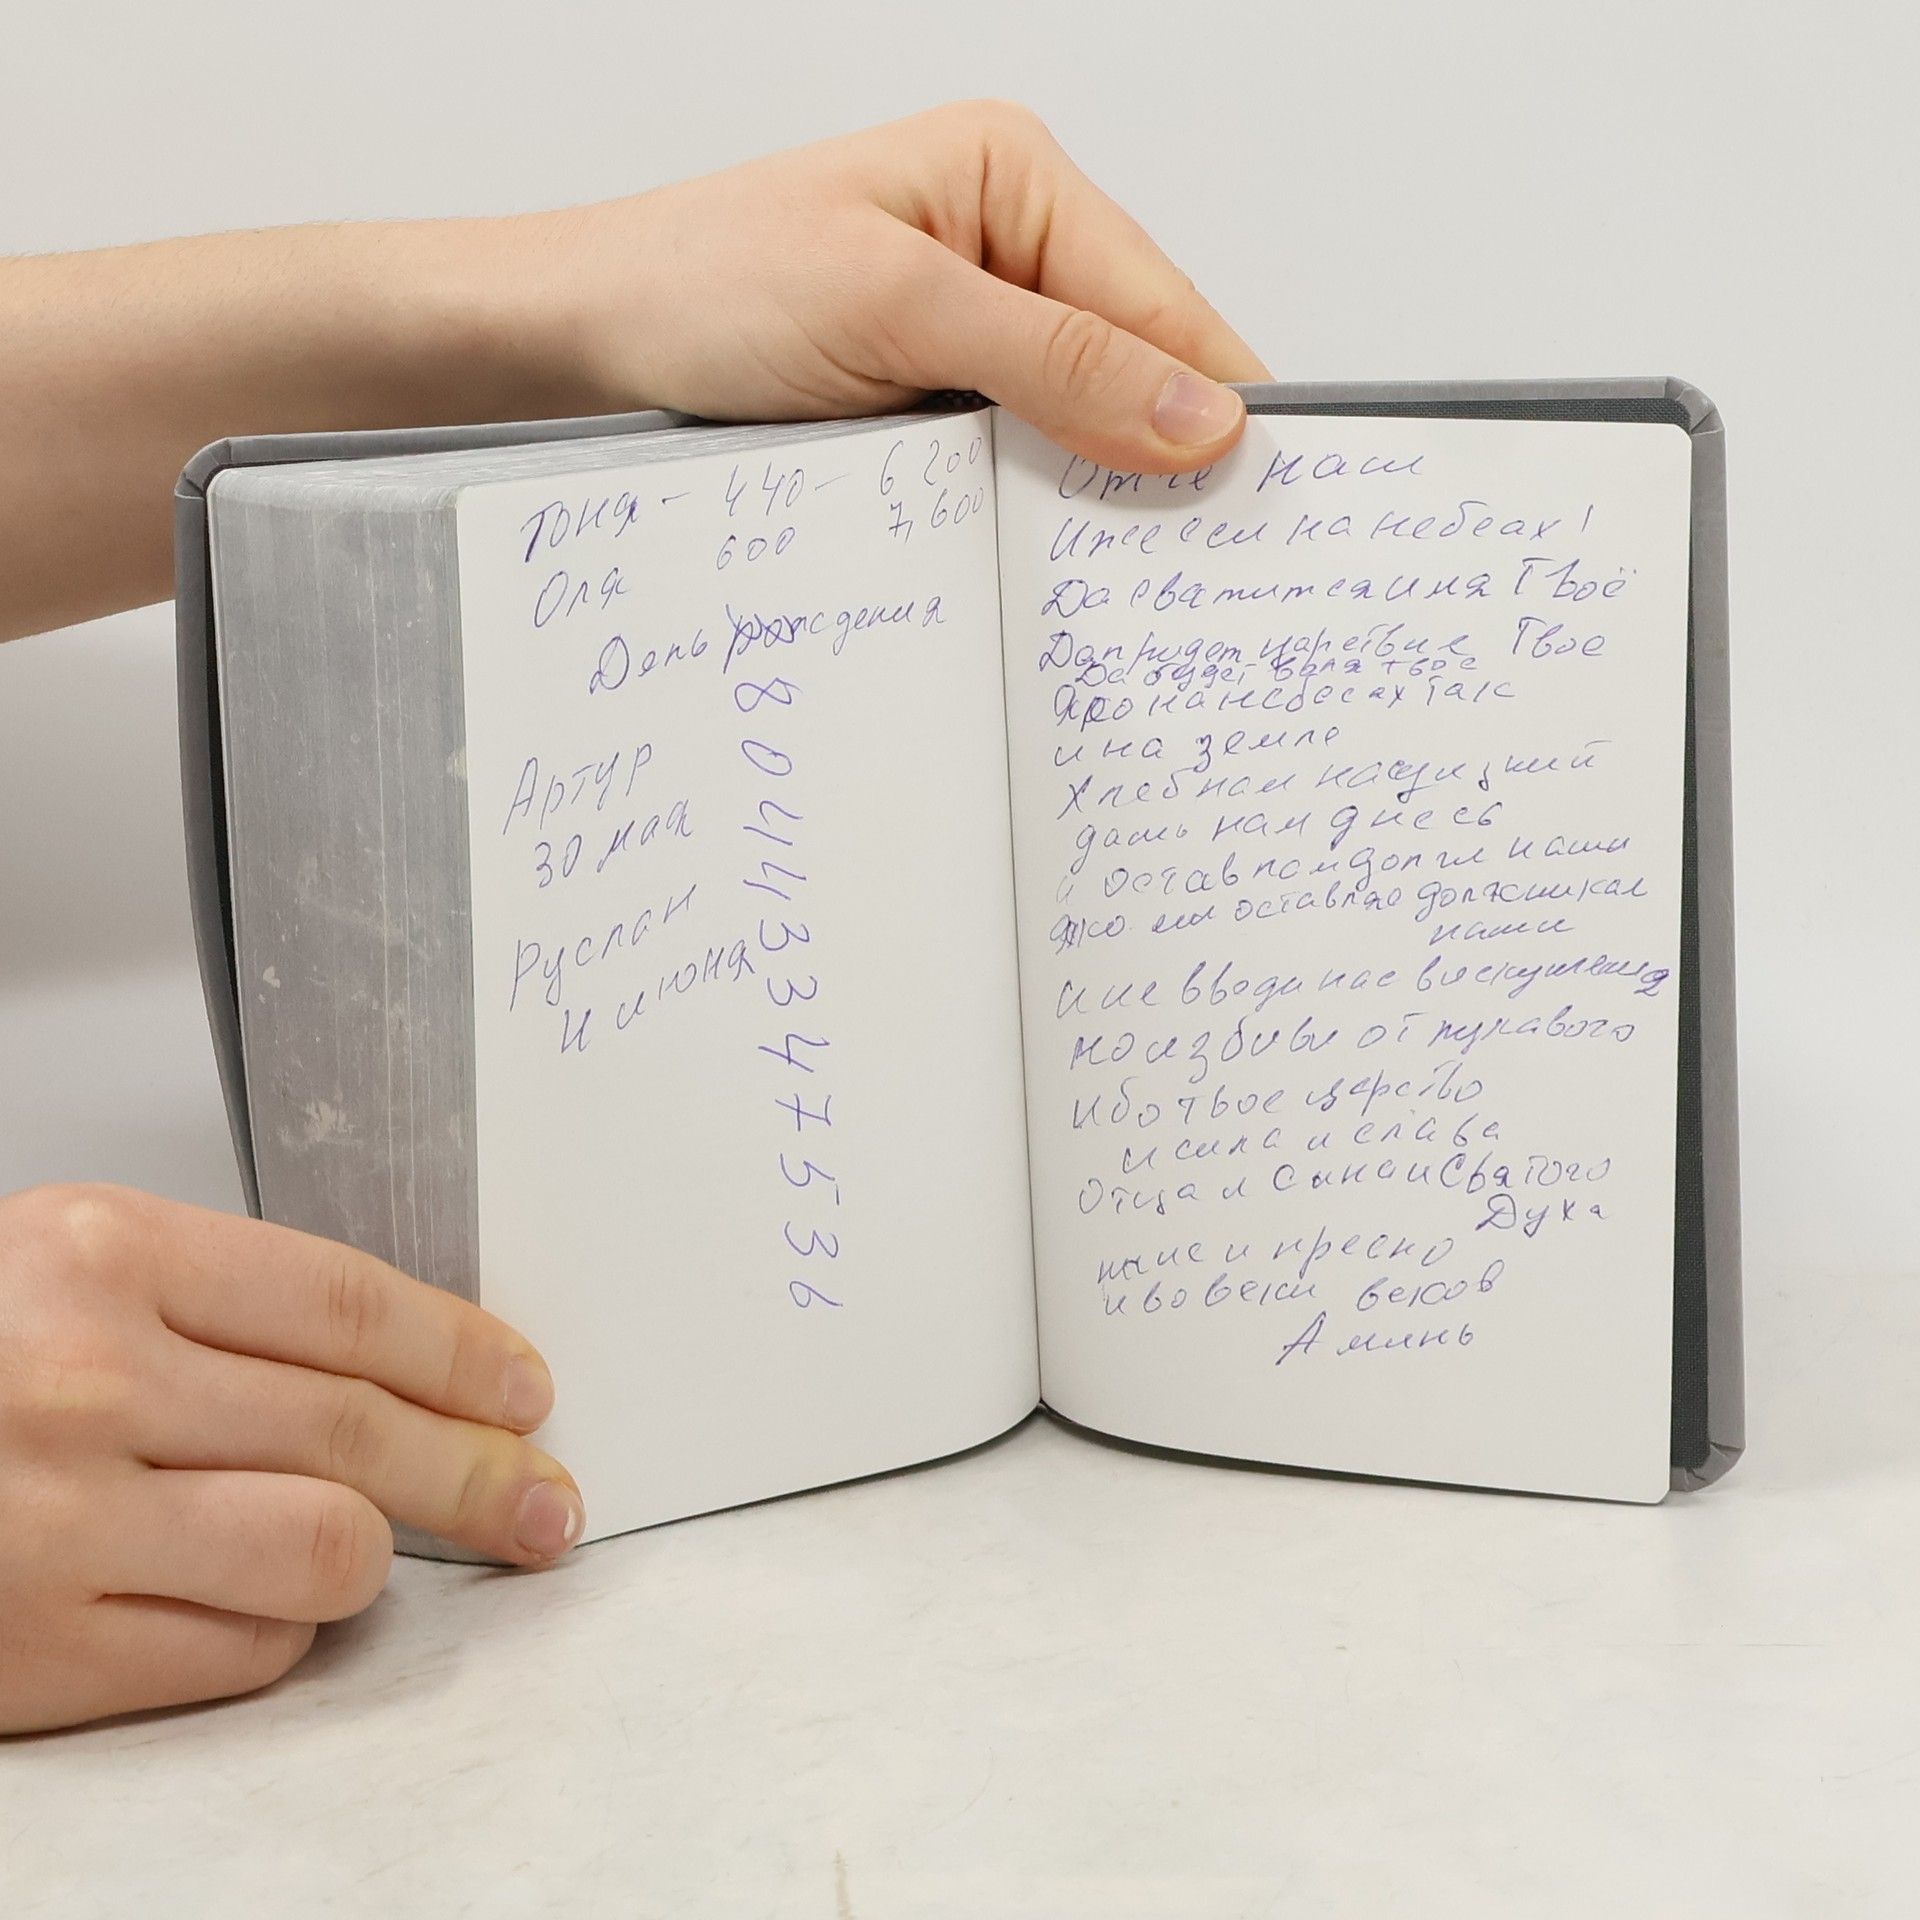 Тоня - 440 - 6 200
Оля 600 7,600
День рождения
Артур
30 мая
Руслан
И июня
80443347536
Отче наш
Иже еси на небеах!
Да сватится имя Твоё
Да придет царствие Твое
Да будет воля твое
Яко на небесах так
и на земле
Хлеб нам
дать нам днесь
и остав нам долги наши
Яко мы оставляе должникам
наши
И не вводи нас в искушения
но избивы от лукавого
Ибо твое царство
и сила и слава
Отца и Сына и Святого
Духа
ныне и пресно
и во веки веков
Аминь